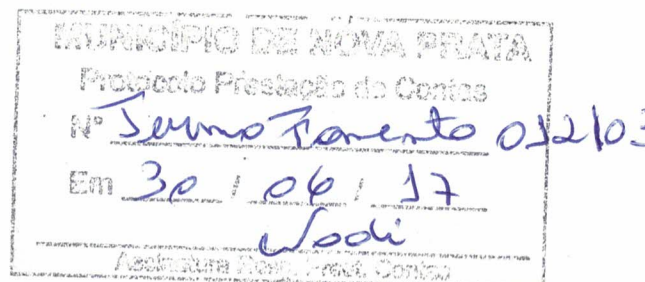 MUNICÍPIO DE NOVA PRATA
Protocolo Prestação de Contas
Nº Termo Fomento 012/03
Em 30 / 06 / 17
Assinatura Prest. Contas